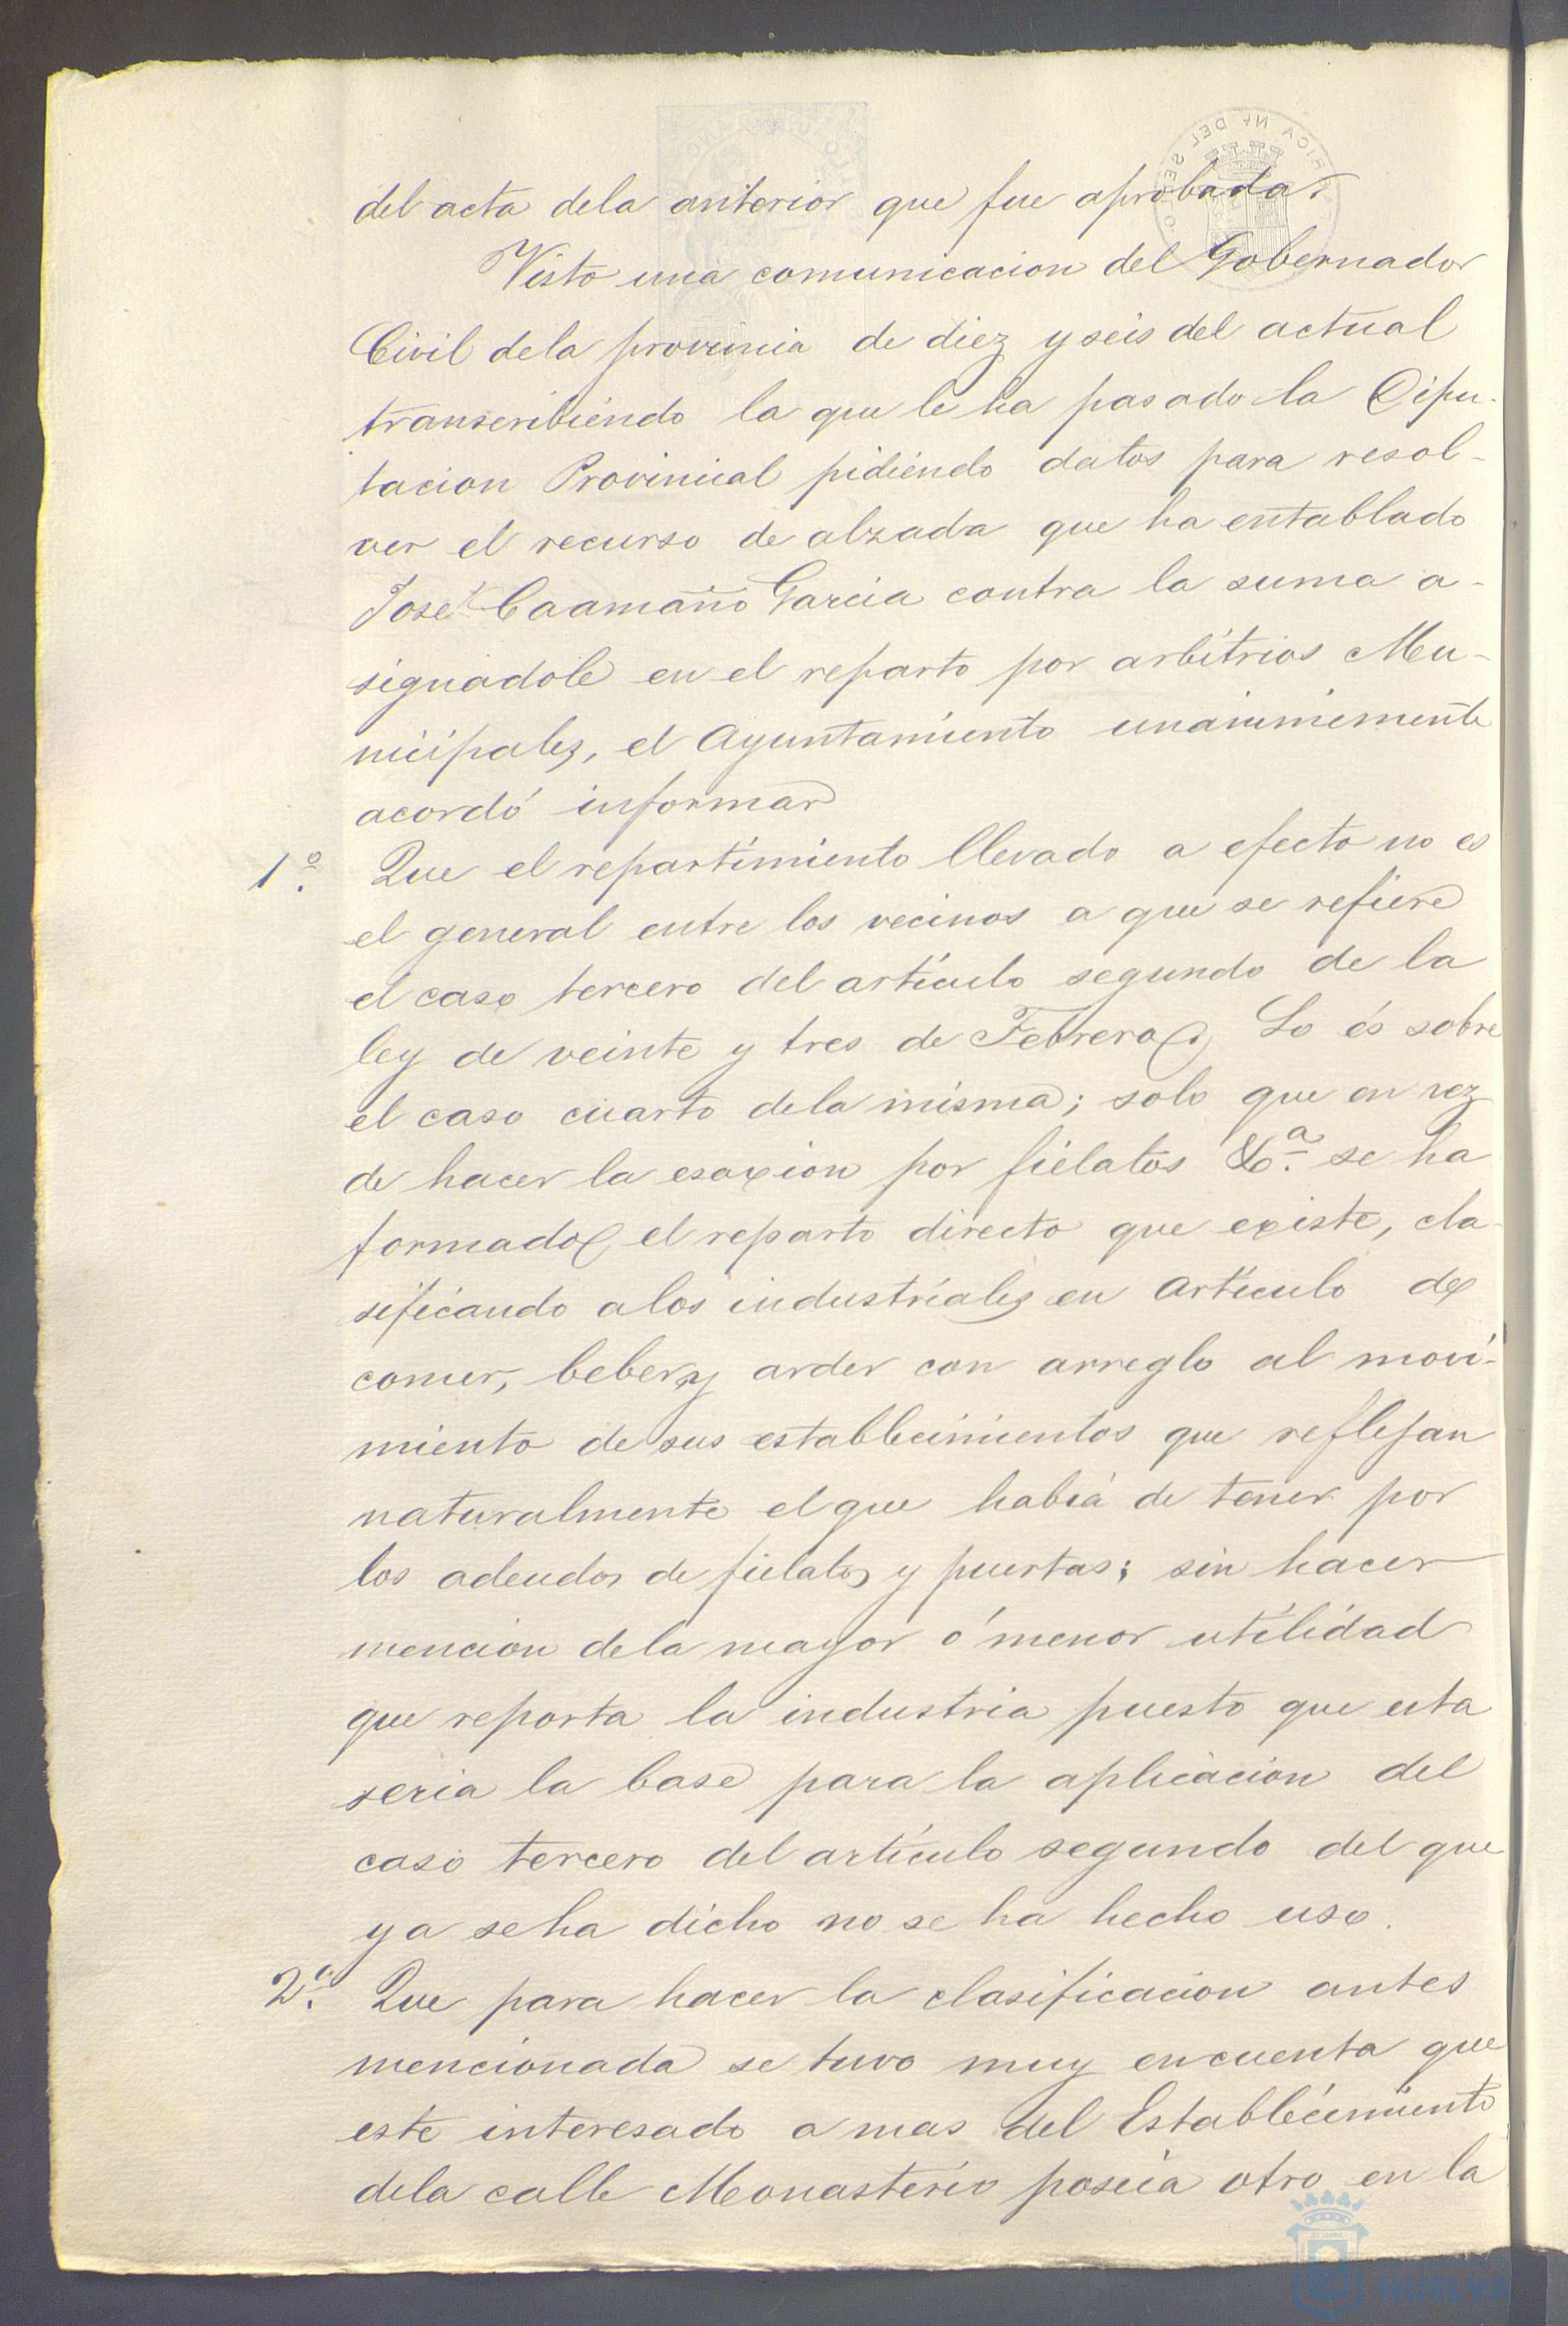 del acta dela anterior que fue aprobada.
Visto una comunicacion del Gobernador
Civil dela provincia de diez y seis del actual
transcribiendo la que le ha pasado la Dipu-
tacion Provincial pidiendo datos para resol-
ver el recurso de alzada que ha entablado
José Caamaño Garcia contra la suma a-
signadole en el reparto por arbitrios Mu-
nicipales, el Ayuntamiento unanimemente
acordó informar
1º. Que el repartimiento llevado a efecto no es
el general entre los vecinos a que se refiere
el caso tercero del artículo segundo de la
ley de veinte y tres de Febrero. Lo és sobre
el caso cuarto dela misma; solo que en vez
de hacer la esaxion por fielatos &ª. se ha
formado, el reparto directo que existe, cla-
sificando a los industriales en artículo de
comer, beber y arder con arreglo al movi-
miento de sus establecimientos que reflejan
naturalmente el que había de tener por
los adeudos de fielatos y puertas; sin hacer
mencion dela mayor ó menor utilidad
que reporta la industria puesto que esta
seria la base para la aplicacion del
caso tercero del artículo segundo del que
ya se ha dicho no se ha hecho uso.
2º. Que para hacer la clasificacion antes
mencionada se tuvo muy en cuenta que
este interesado a mas del Establecimiento
dela calle Monasterio poseía otro en la
HUELVA